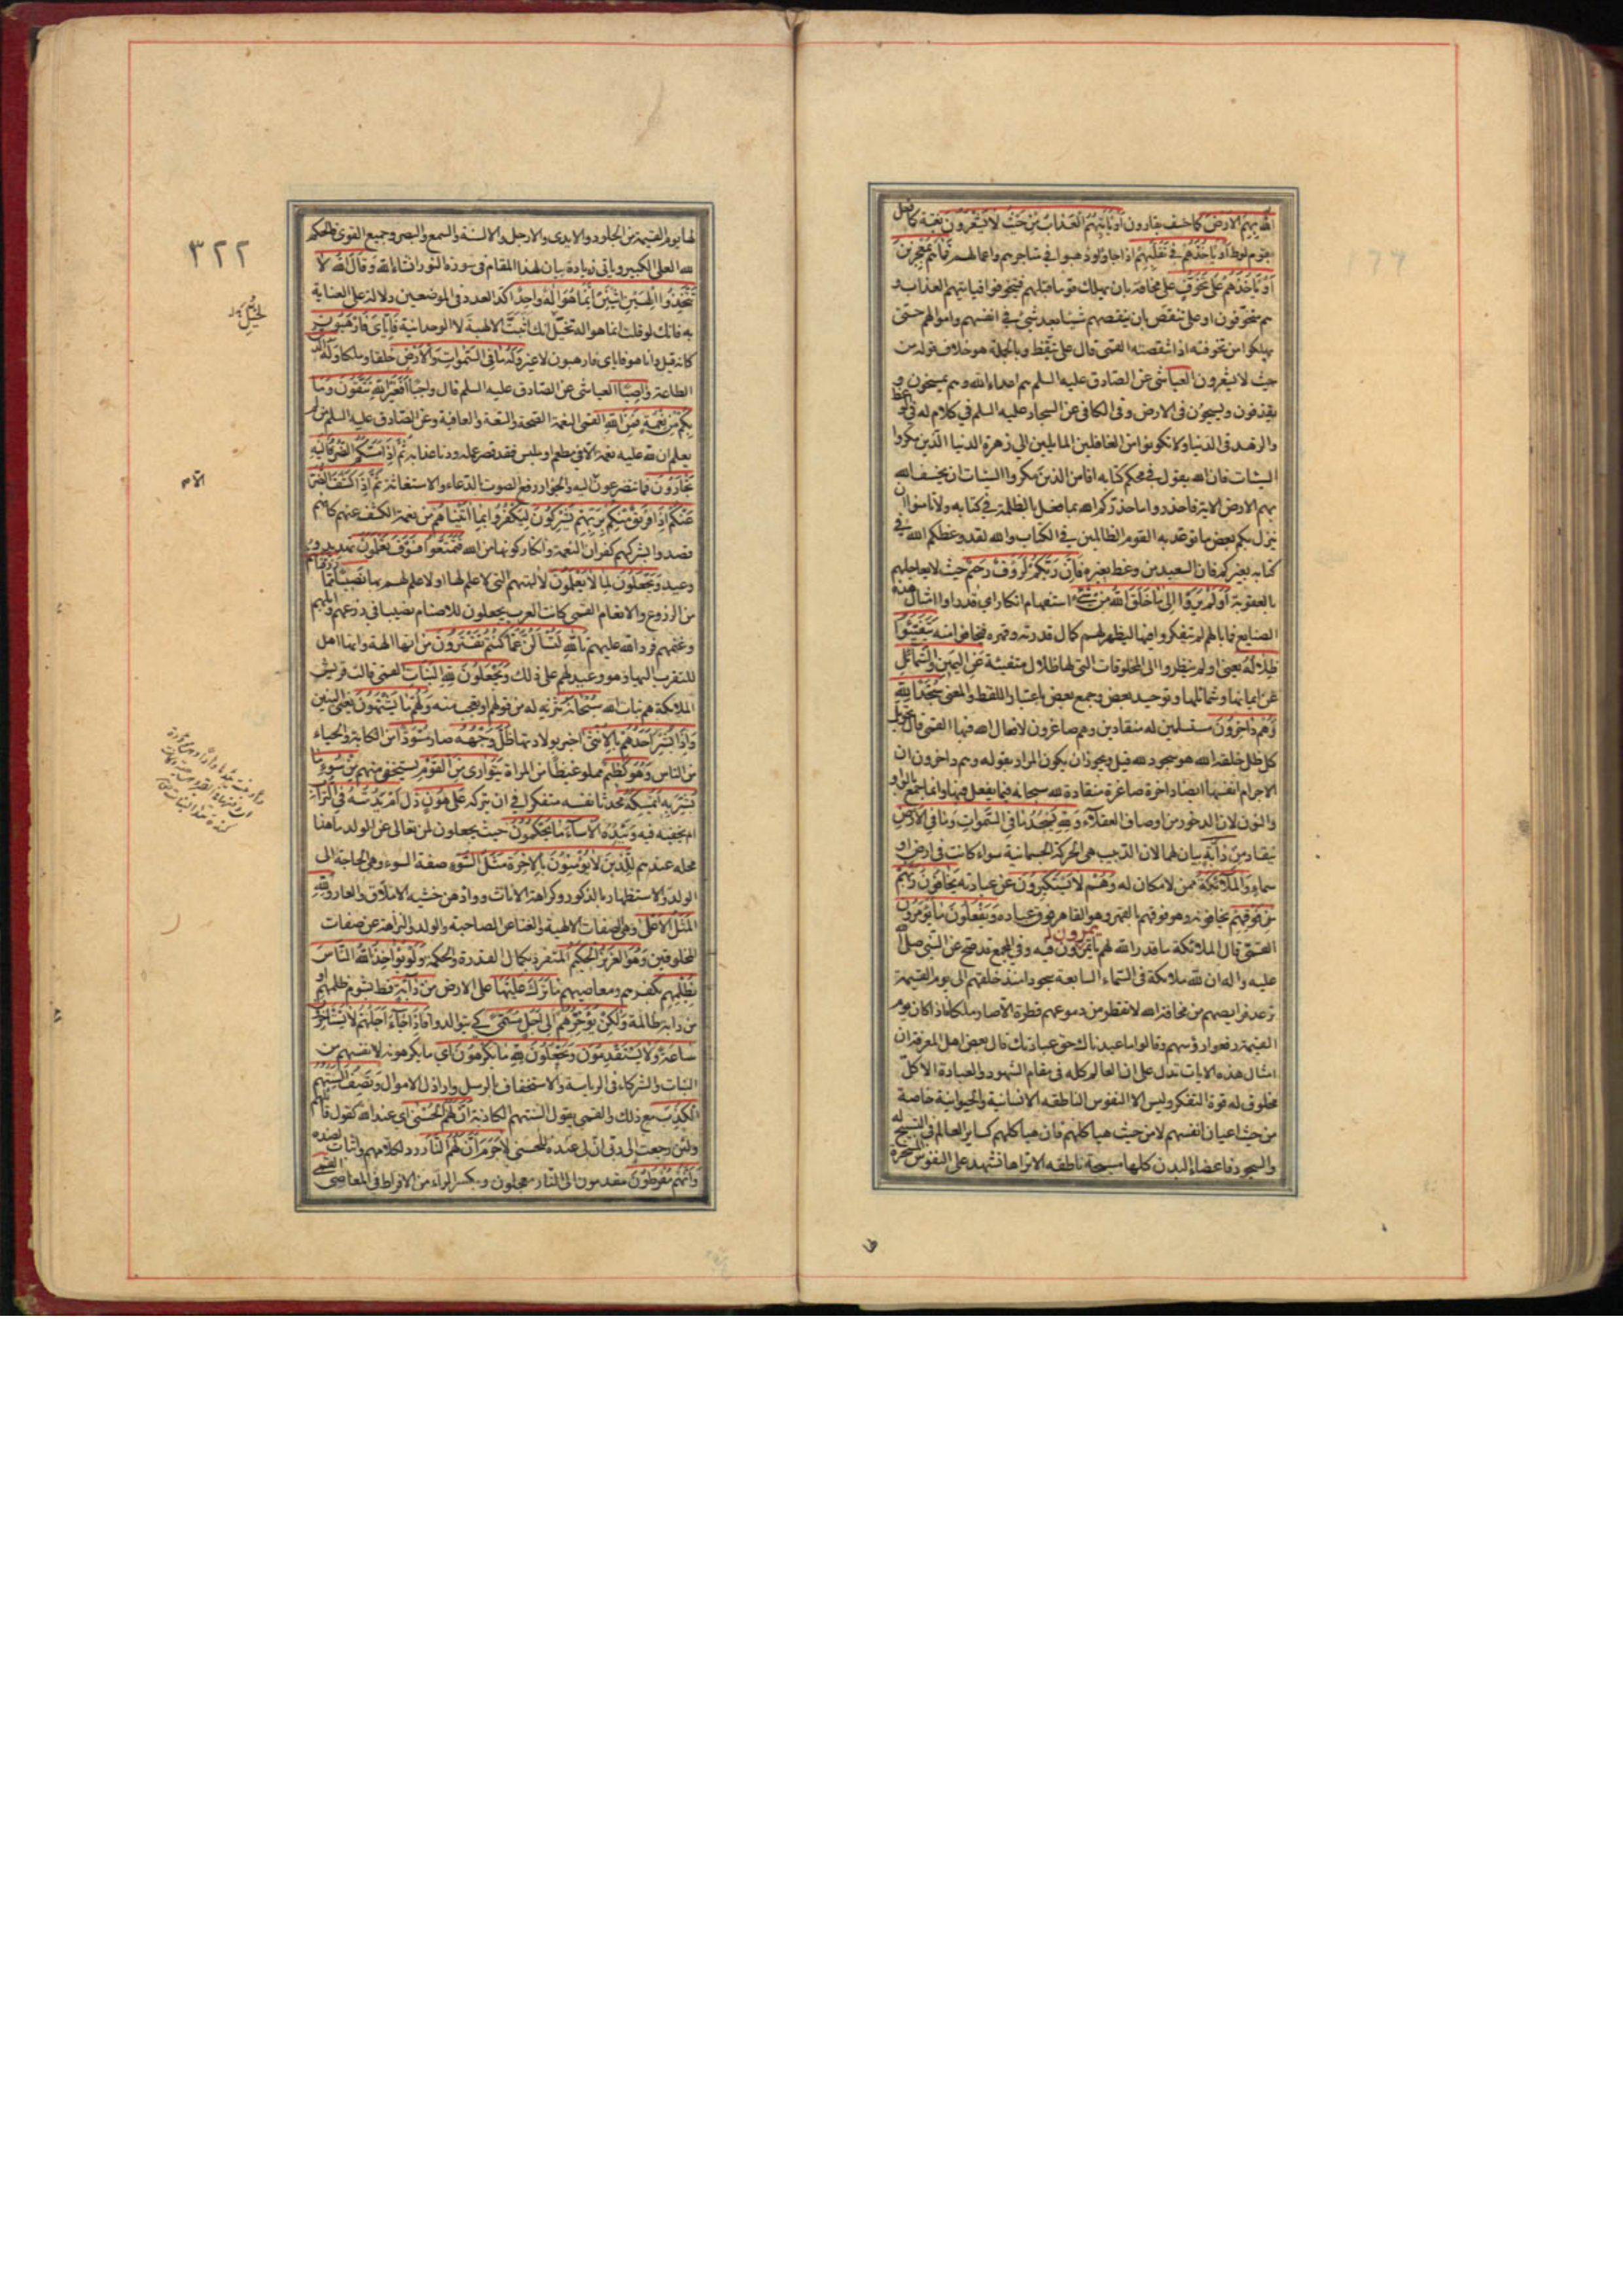 الله بهم الارض كما خسف بقارون او ياتيهم العذاب من حيث لا يشعرون بغتة كما فعل
بقوم لوط او ياخذهم في تقلبهم اذا جاؤا وذهبوا في متاجرهم واعمالهم فما هم بمعجزين
او ياخذهم على تخوف على مخافة بان يهلك قوما قبلهم فيتخوفوا فياتيهم العذاب و
هم متخوفون او على تنقص بان ينقصهم شيئا بعد شئ في انفسهم واموالهم حتى
يهلكوا من تخوفته اذا تنقصته القمي قال على تيقظ وبالجملة هو خلاف قوله من
حيث لا يشعرون العياشي عن الصادق عليه السلم هم اعداء الله وهم يمسخون و
يقذفون ويسيحون في الارض وفي الكافي عن السجاد عليه السلم في كلام له في الوعظ
والزهد في الدنيا ولا تكونوا من الغافلين المايلين الى زهرة الدنيا الذين مكروا
السيئات فان الله يقول في محكم كتابه افامن الذين مكروا السيئات ان يخسف الله
بهم الارض الاية فاحذروا ما حذركم الله بما فعل بالظلمة في كتابه ولا تامنوا ان
ينزل بكم بعض ما توعد به القوم الظالمين في الكتاب والله لقد وعظكم الله في
كتابه بغيركم فان السعيد من وعظ بغيره فان ربكم لرؤف رحيم حيث لا يعاجلهم
بالعقوبة اولم يروا الى ما خلق الله من شئ استفهام انكار اي قد راوا امثال هذه
الصنايع فما بالهم لم يتفكروا فيها ليظهر لهم كمال قدرته وقهره فيخافوا منه يتفيئوا
ظلاله يعني اولم ينظروا الى المخلوقات التي لها ظلال متفيئة عن اليمين والشمائل
عن ايمانها وشمائلها وتوحيد بعض وجمع بعض باعتبار اللفظ والمعنى سجدا لله
وهم داخرون مستسلمين له منقادين وهم صاغرون لافعال الله فيها القمي قال تحويل
كل ظل خلقه الله هو سجود لله قيل ويجوز ان يكون المراد بقوله وهم داخرون ان
الاجرام انفسها ايضا داخرة صاغرة منقادة لله سبحانه فيما يفعل فيها وانما جمع بالواو
والنون لان الدخور من اوصاف العقلاء ولله يسجد ما في السموات وما في الارض
ينقاد من دابة بيان لهما لان الدبيب هي الحركة الجسمانية سواء كانت في ارض او
سماء والملائكة ممن لا مكان له وهم لا يستكبرون عن عبادته يخافون ربهم
من فوقهم يخافونه وهو فوقهم بالقهر وهو القاهر فوق عباده ويفعلون ما يؤمرون
القمي قال الملائكة ما قدر الله لهم يمرون فيه وفي المجمع قد صح عن النبي صلى الله
عليه واله ان لله ملائكة في السماء السابعة سجودا منذ خلقهم الى يوم القيمة
ترعد فرايصهم من مخافة الله لا تقطر من دموعهم قطرة الا صار ملكا فاذا كان يوم
القيمة رفعوا رؤسهم وقالوا ما عبدناك حق عبادتك قال بعض اهل المعرفة ان
امثال هذه الايات تدل على ان العالم كله في مقام الشهود والعبادة الا كل
مخلوق له قوة التفكر وليس الا النفوس الناطقة الانسانية والحيوانية خاصة
من حيث اعيان انفسهم لا من حيث هياكلهم فان هياكلهم كساير العالم في التسبيح له
والسجود فاعضاء البدن كلها مسبحة ناطقة الا تراها تشهد على النفوس المسخرة
لها يوم القيمة من الجلود والايدي والارجل والالسنة والسمع والبصر وجميع القوى فالحكم
لله العلي الكبير وياتي زيادة بيان لهذا المقام في سورة النور انشاء الله وقال الله لا
تتخذوا الهين اثنين انما هو اله واحد اكد العدد في الموضعين دلالة على العناية
به فانك لو قلت انما هو اله تخيل انك اثبت الالهية لا الوحدانية فاياي فارهبون
كانه قيل وانا هو فاياي فارهبون لا غير وله ما في السموات والارض خلقا وملكا وله الدين
الطاعة واصبا العياشي عن الصادق عليه السلم قال واجبا افغير الله تتقون وما
بكم من نعمة فمن الله القمي النعمة الصحة والسعة والعافية وعن الصادق عليه السلم من لم
يعلم ان لله عليه نعمة الا في مطعم او ملبس فقد قصر عمله ودنا عذابه ثم اذا مسكم الضر فاليه
تجارون فما تتضرعون الا اليه والجؤار رفع الصوت بالدعاء والاستغاثة ثم اذا كشف الضر
عنكم اذا فريق منكم بربهم يشركون ليكفروا بما اتيناهم من نعمة الكشف عنهم كانهم
قصدوا بشركهم كفران النعمة وانكار كونها من الله فتمتعوا فسوف تعلمون تهديد و
وعيد ويجعلون لما لا يعلمون لالهتهم التي لا علم لها او لا علم لهم بها نصيبا مما رزقناهم
من الزروع والانعام القمي كانت العرب يجعلون للاصنام نصيبا في زرعهم وابلهم
وغنمهم فرد الله عليهم تالله لتسألن عما كنتم تفترون من انها الهة وانها اهل
للتقرب اليها وهو وعيد لهم على ذلك ويجعلون لله البنات القمي قالت قريش
الملائكة هم بنات الله سبحانه تنزيه له من قولهم او تعجب منه ولهم ما يشتهون يعني البنين
واذا بشر احدهم بالانثى اخبر بولادتها ظل وجهه صار مسودا من الكابة والحياء
من الناس وهو كظيم مملو غيظا من المراة يتوارى من القوم يستخفي منهم من سوء ما
بشر به ايمسكه محدثا نفسه متفكرا في ان يتركه على هون ذل ام يدسه في التراب
ام يخفيه فيه ويئده الا ساء ما يحكمون حيث يجعلون لمن تعالى عن الولد ما هذا
محله عندهم للذين لا يؤمنون بالاخرة مثل السوء صفة السوء وهي الحاجة الى
الولد والاستظهار بالذكور وكراهة الاناث ووادهن خشية الاملاق والعار ولله
المثل الاعلى وهي الصفات الالهية والغنا عن الصاحبة والولد والنزاهة عن صفات
المخلوقين وهو العزيز الحكيم المتفرد بكمال القدرة والحكمة ولو يؤاخذ الله الناس
بظلمهم بكفرهم ومعاصيهم ما ترك عليها على الارض من دابة قط بشوم ظلمهم او
من دابة ظالمة ولكن يؤخرهم الى اجل مسمى كي يتوالدوا فاذا جاء اجلهم لا يستاخرون
ساعة ولا يستقدمون ويجعلون لله ما يكرهون اي ما يكرهونه لانفسهم من
البنات والشركاء في الرياسة والاستخفاف بالرسل واراذل الاموال وتصف السنتهم
الكذب مع ذلك والقمي يقول السنتهم الكاذبة ان لهم الحسنى اي عند الله كقول قائلهم
ولئن رجعت الى ربي ان لي عنده للحسنى لا جرم ان لهم النار رد لكلامهم واثبات لضده
وانهم مفرطون مقدمون الى النار معجلون وبكسر الراء من الافراط في المعاصي القمي
٣٢٢